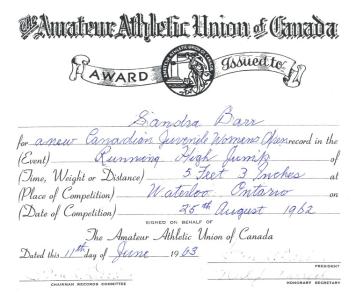 The Amateur Athletic Union of Canada
AWARD Issued to
Sandra Barr
for a new Canadian Juvenile Womens Open record in the
(Event) Running High Jump of
(Time, Weight or Distance) 5 Feet 3 Inches at
(Place of Competition) Waterloo, Ontario on
(Date of Competition) 25th August 1962
SIGNED ON BEHALF OF
The Amateur Athletic Union of Canada
Dated this 11th day of June 1963
PRESIDENT
CHAIRMAN RECORDS COMMITTEE
HONORARY SECRETARY